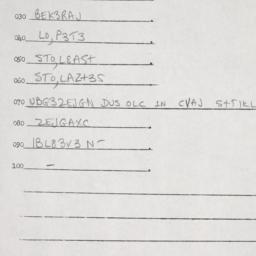 030 BEK3RAJ.
040 LO,P3T3.
050 STO,L8A5+.
060 STO,LAZ+35
070 UBG3ZEJGAN DUS OLC IN CVAJ S+TIKL
080 ZEJGAXC.
090 IBL83V3 N-.
100 -.